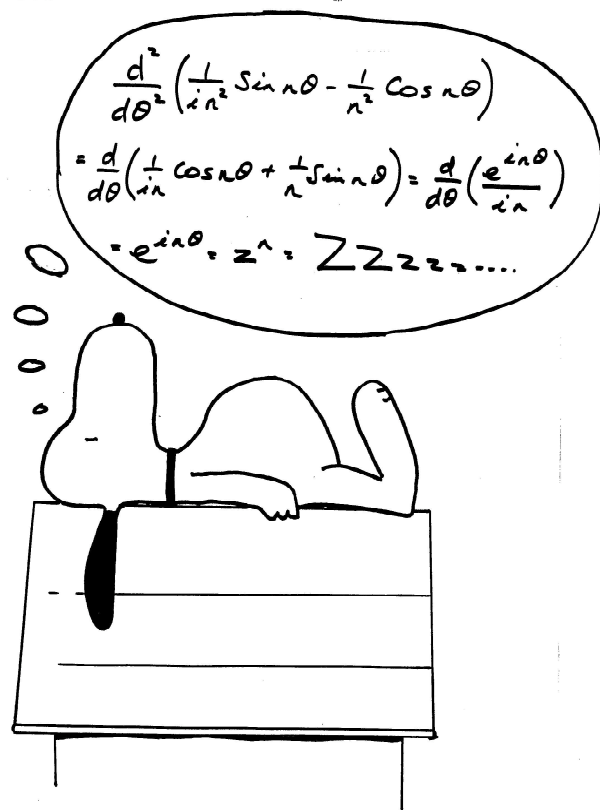 d²/dθ² (1/in² Sin nθ - 1/n² Cos nθ)
= d/dθ (1/in Cos nθ + 1/n Sin nθ) = d/dθ (e^{inθ}/in)
= e^{inθ} = z^n = ZZzzz.....